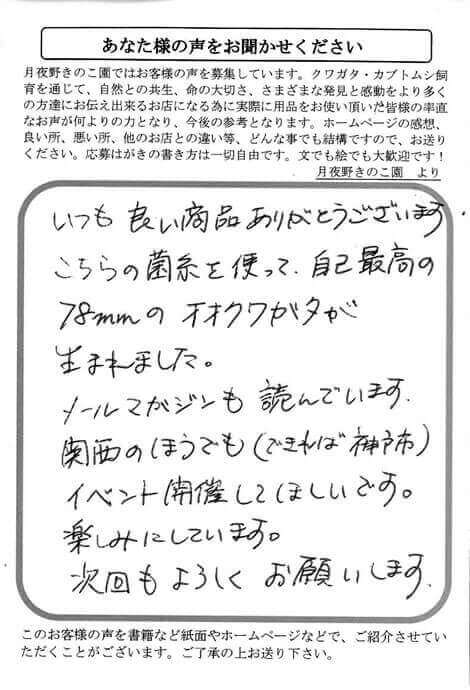 あなた様の声をお聞かせください
月夜野きのこ園ではお客様の声を募集しています。クワガタ・カブトムシ飼
育を通じて、自然との共生、命の大切さ、さまざまな発見と感動をより多く
の方達にお伝え出来るお店になる為に実際に用品をお使い頂いた皆様の率直
なお声が何よりの力となり、今後の参考となります。ホームページの感想、
良い所、悪い所、他のお店との違い等、どんな事でも結構ですので、お送り
ください。応募はがきの書き方は一切自由です。文でも絵でも大歓迎です！
月夜野きのこ園　より
いつも良い商品ありがとうございます
こちらの菌糸を使って、自己最高の
78mmのオオクワガタが
生まれました。
メールマガジンも読んでいます。
関西のほうでも（できれば神戸市）
イベント開催してほしいです。
楽しみにしています。
次回もよろしくお願いします。
このお客様の声を書籍など紙面やホームページなどで、ご紹介させてい
ただくことがございます。ご了承の上お送り下さい。